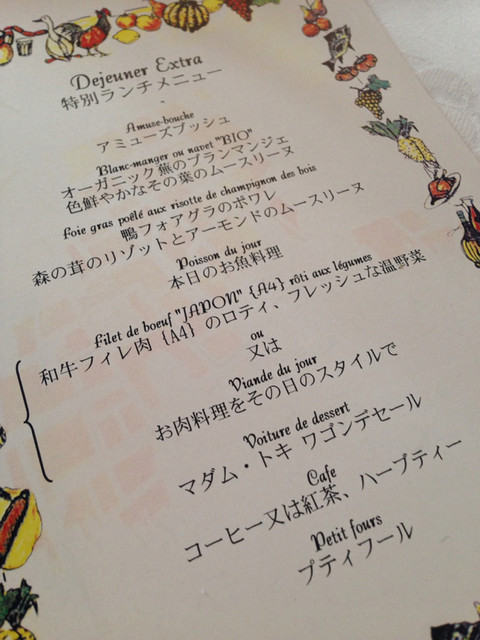 Dejeuner Extra
特別ランチメニュー
Amuse-bouche
アミューズブッシュ
Blanc-manger ou navet "BIO"
オーガニック蕪のブランマンジェ
色鮮やかなその葉のムースリーヌ
Foie gras poêlé aux risotte de champignon des bois
鴨フォアグラのポワレ
森の茸のリゾットとアーモンドのムースリーヌ
Poisson du jour
本日のお魚料理
Filet de boeuf "JAPON" {A4} rôti aux légumes
和牛フィレ肉 {A4} のロティ、フレッシュな温野菜
ou
又は
Viande du jour
お肉料理をその日のスタイルで
Voiture de dessert
マダム・トキ ワゴンデセール
Cafe
コーヒー又は紅茶、ハーブティー
Petit fours
プティフール